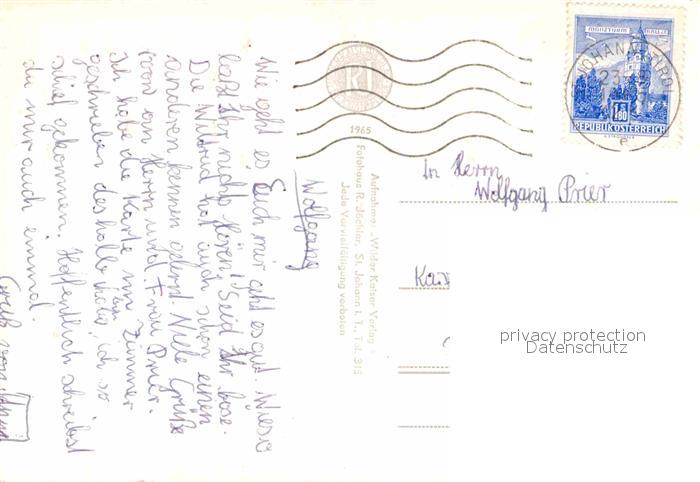 Wolfgang
Wie geht es Euch mir geht es gut. Wieso
laßt Ihr nichts hören! Seid Ihr böse.
Die Wiltrud hat auch schon einen
anderen kennen gelernt. Viele Grüße
von an Herrn und Frau Prier.
Ich habe die Karte im Zimmer
geschrieben deshalb habe ich so
schief gekommen. Hoffentlich schreibst
du mir auch einmal.
Gruß von
1965
Aufnahme: „Wilder Kaiser Verlag"
Fotohaus R. Jöchler, St. Johann i. T., Tel. 315
Jede Vervielfältigung verboten
MÜNZTURM HALL i. T.
S 1·80
REPUBLIK ÖSTERREICH
ST. JOHANN
23
e
Herrn
Wolfgang Prier
privacy protection
Datenschutz